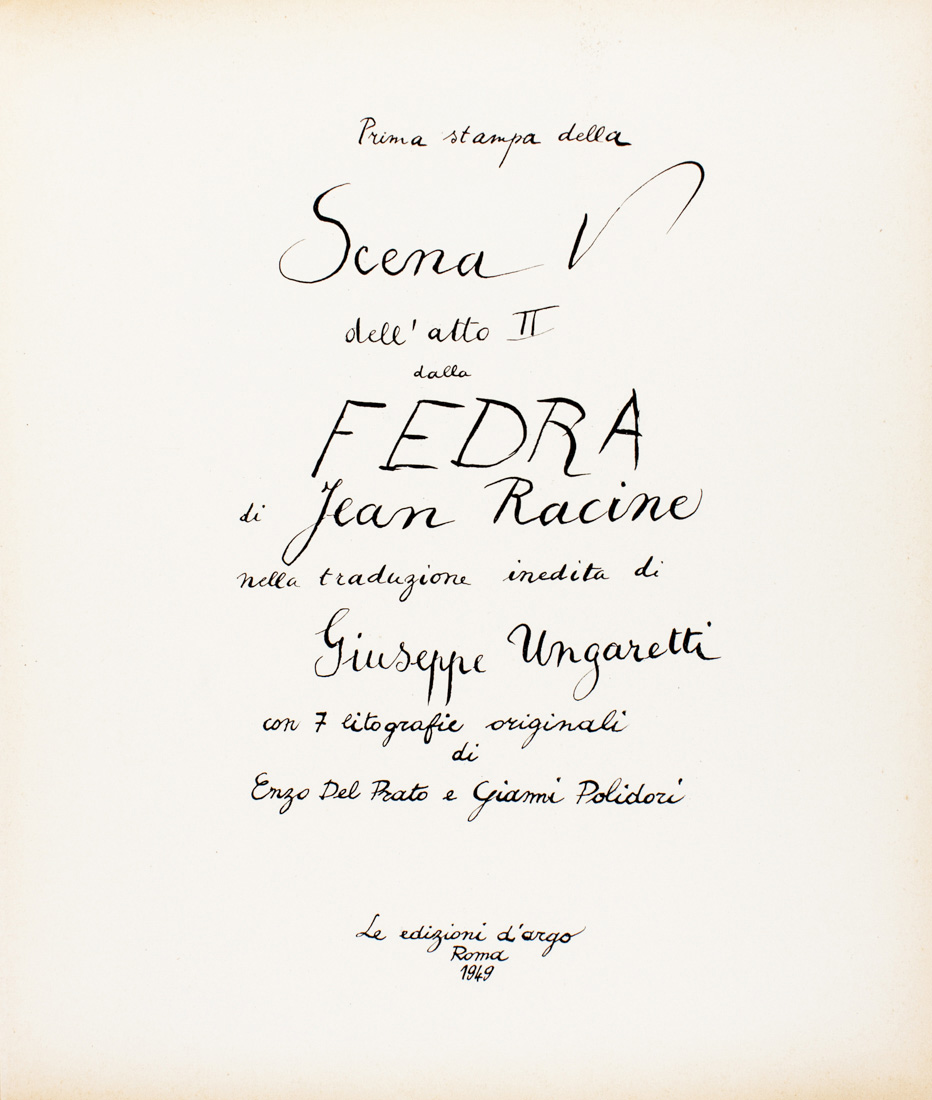 Prima stampa della
Scena V
dell'atto II
dalla
FEDRA
di Jean Racine
nella traduzione inedita di
Giuseppe Ungaretti
con 7 litografie originali
di
Enzo Del Prato e Gianni Polidori
Le edizioni d'argo
Roma
1949